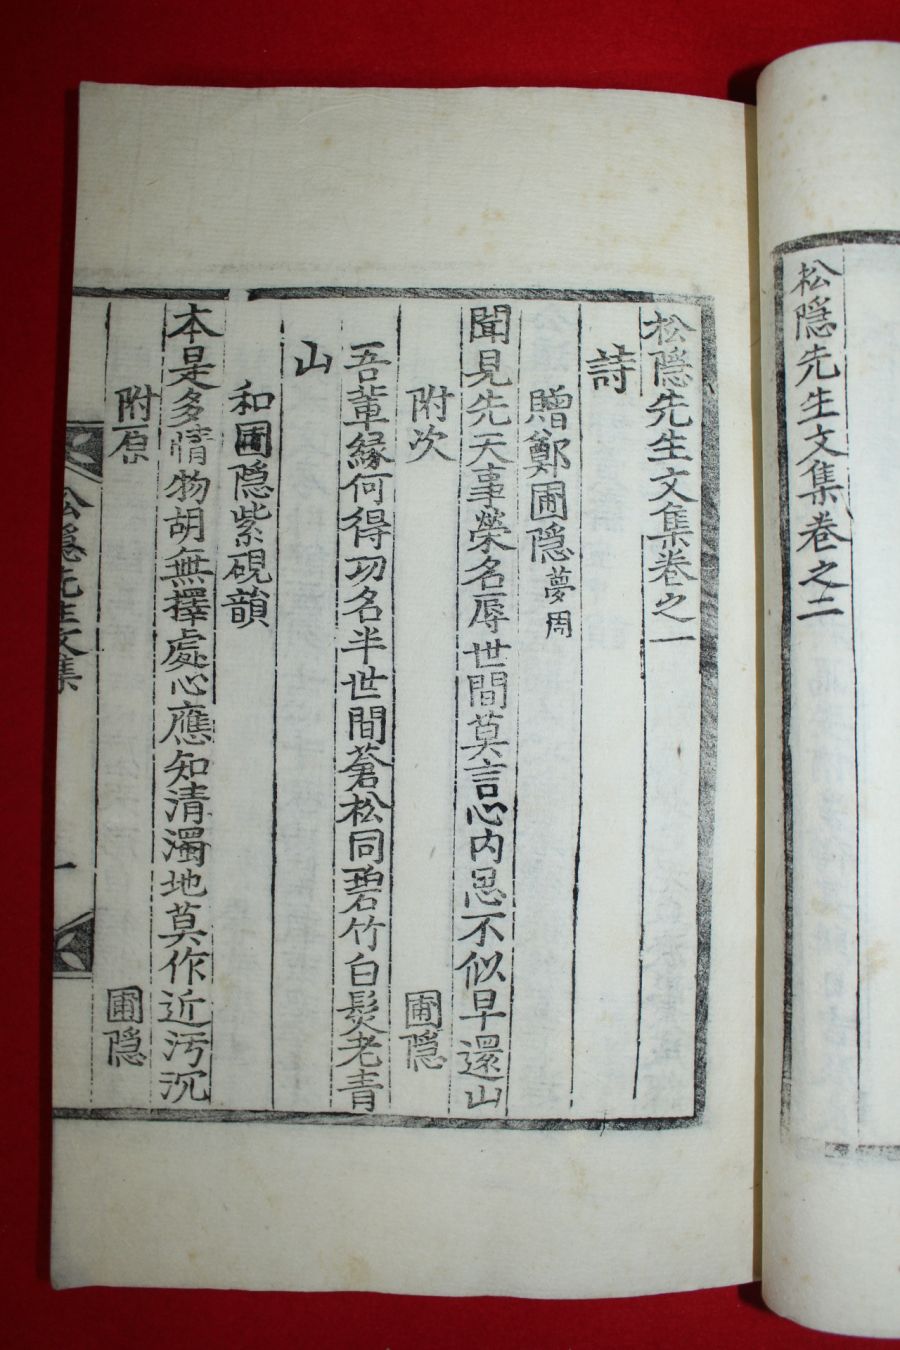 松隱先生文集卷之二
松隱先生文集卷之一
詩
贈鄭圃隱夢周
聞見先天事榮名辱世間莫言心內思不似早還山
附次 圃隱
吾輩緣何得功名半世間蒼松同碧竹白髮老青
山
和圃隱紫硯韻
本是多情物胡無擇處心應知清濁地莫作近汚沉
附原 圃隱
松隱先生文集 一